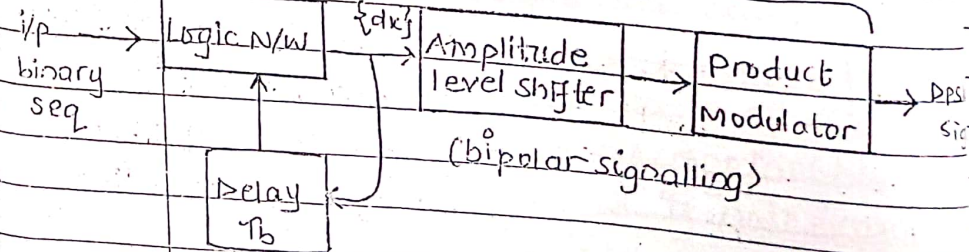 i/p
binary
seq
Logic N/W
{dk}
Amplitude
level shifter
Product
Modulator
DPS
sig
(bipolar signalling)
Delay
Tb